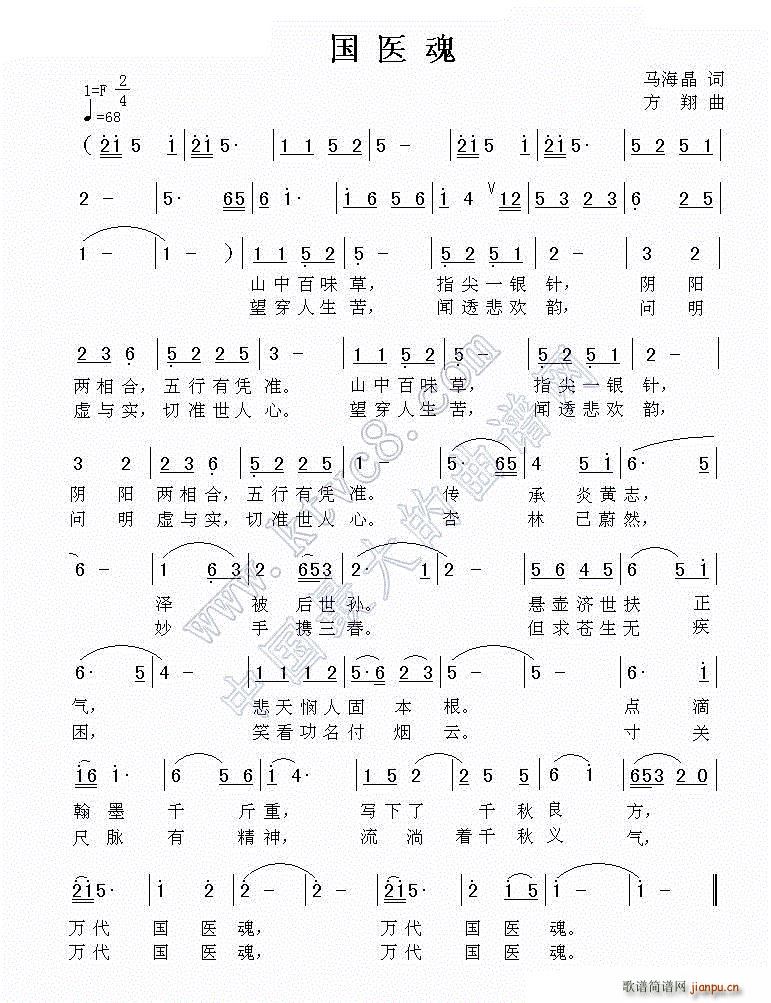 国医魂
马海晶 词
方 翔 曲
1=F 2/4
♩=68
（2̇1̇5 1̇ | 2̇1̇5· | 1 1 5̣ 2 | 5 － | 2̇1̇5 1̇ | 2̇1̇5· | 5̣ 2 5̣ 1
2 － | 5· 65 | 6 1̇· | 1̇ 6 5 6 | 1̇ 4 ∨ 12 | 5 3 2 3 | 6̣ 2 5̣
1 － | 1 － ） | 1 1 5̣ 2 | 5 － | 5̣ 2 5̣ 1 | 2 － | 3 2
山中百味草， 指尖一银针， 阴阳
望穿人生苦， 闻透悲欢韵， 问明
2 3 6̣ | 5̣ 2 2 5 | 3 － | 1 1 5̣ 2 | 5 － | 5̣ 2 5̣ 1 | 2 －
两相合，五行有凭准。 山中百味草， 指尖一银针，
虚与实，切准世人心。 望穿人生苦， 闻透悲欢韵，
3 2 | 2 3 6̣ | 5̣ 2 2 5 | 1 － | 5· 65 | 4 5 1̇ | 6· 5
阴阳两相合，五行有凭准。传 承炎黄志，
问明虚与实，切准世人心。杏 林己蔚然，
6 － | 1 6̣ 3 | 2 653 | 2· 1 | 2 － | 5 6 4 5 | 6 5 1̇
泽 被后世孙。 悬壶济世扶正
妙 手携三春。 但求苍生无疾
6· 5 | 4 － | 1 1 1 2 | 5· 6 2 3 | 5 － | 5 － | 6· 1̇
气， 悲天悯人固本根。 点滴
困， 笑看功名付烟云。 寸关
1̇6 1̇· | 6 5 6 | 1̇ 4· | 1 5 2 | 2 5 5 | 6 1̇ | 653 2 0
翰墨千斤重， 写下了千秋良方，
尺脉有精神， 流淌着千秋义气，
2̇1̇5· | 1̇ 2̇ | 2̇ － | 2̇ － | 2̇1̇5· | 2̇ 1̇5 | 1̇ － | 1̇ － ‖
万代国医魂， 万代国医魂。
万代国医魂， 万代国医魂。
www.ktvc8.com
中国最大的曲谱网
歌谱简谱网
jianpu.cn